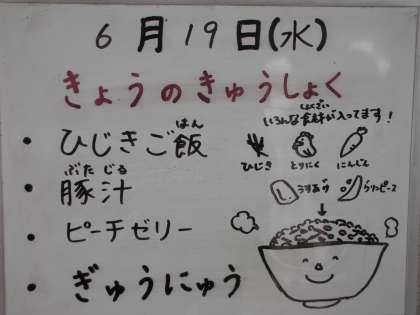 6月19日(水)
きょうのきゅうしょく
・ひじきご飯
はん
・豚汁
ぶたじる
・ピーチゼリー
・ぎゅうにゅう
いろんな食材が入ってます!
しょくざい
ひじき とりにく にんじん
うすあげ グリンピース